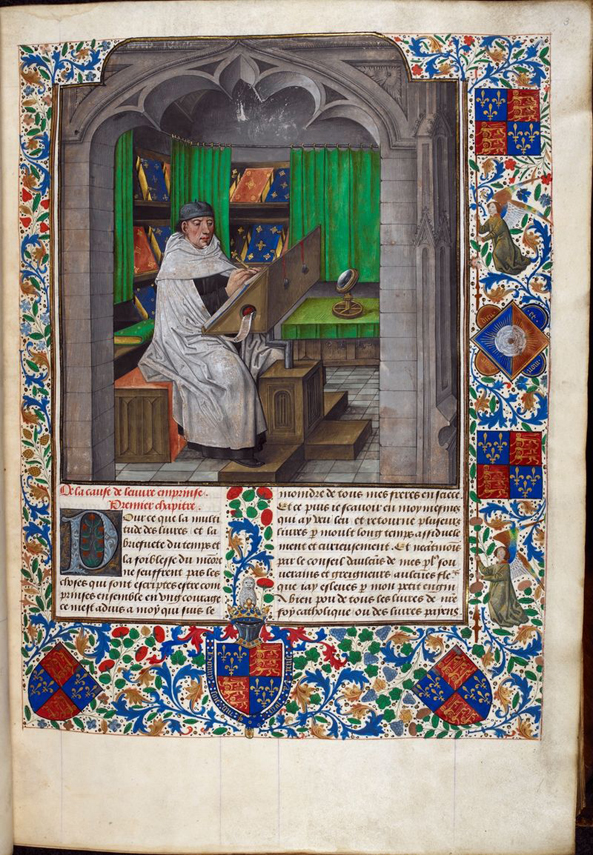 3
De la cause de leuure emprinse.
Premier chapitre.
Pour ce que la multi
tude des liures et la
briefuete du temps et
la foiblesse du
ne seuffrent pas les
choses qui sont escriptes estre com
prinses ensemble en vng courage
ce mest aduis a moy qui suis le
moindre de tous mes freres en
Et ce puis ie scauoir en moy mesmes
qui ay veu leu et retourne plusieurs
liures p moult long temps assiduel
ment et curieusement. Et neatmois
par le conseil daulcuns de mes pl9 sou
uerains et greigneurs aulcunes
que iay esleues p mon petit engin
A bien pou de tous les liures de nre
foy catholique ou des liures payens.